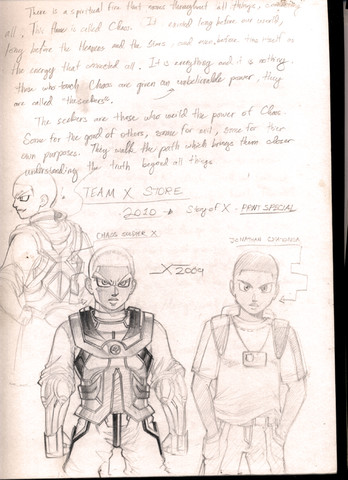 There is a spiritual fire that roams throughout all things, connecting
all. This flame is called Chaos. (It existed long before our world,
long before the heavens and the stars, and even before time itself is
the energy that connected all. It is everything and it is nothing
those who touch Chaos are given an unbelievable power, they
are called "the seekers".
The seekers are those who wield the power of Chaos.
Some for the good of others, some for evil, some for their
own purposes. They walk the path which brings them closer
understanding the truth beyond all things
TEAM X STORE
2010 → Story of X - PRNT SPECIAL
CHAOS X
JONATHAN
X 2009